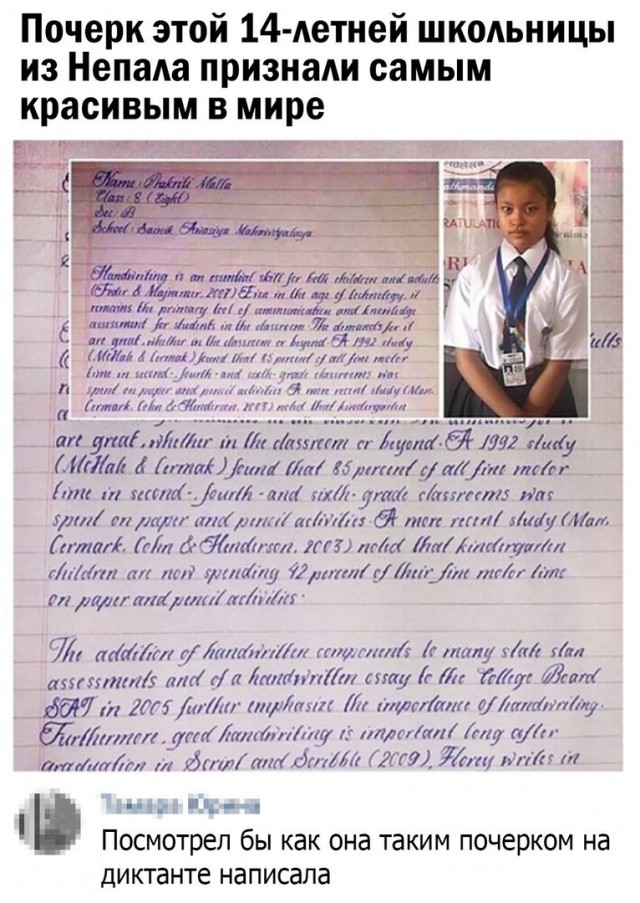 Почерк этой 14-летней школьницы
из Непала признали самым
красивым в мире
Name : Prakriti Malla
Class : 8 (Eight)
Sec : B
School : Sainik Awasiya Mahavidyalaya
Handwriting is an essential skill for both children and adults
(Feder & Majnemer, 2007) Even in the age of technology, it
remains the primary tool of communication and knowledge
assessment for students in the classroom. The demands for it
are great, whether in the classroom or beyond. A 1992 study
(McHale & Cermak) found that 85 percent of all fine motor
time in second-, fourth - and sixth- grade classrooms was
spent on paper and pencil activities. A more recent study (Marr,
Cermark, Cohn & Henderson, 2003) noted that kindergarten
are great, whether in the classroom or beyond. A 1992 study
(McHale & Cermak) found that 85 percent of all fine motor
time in second-, fourth - and sixth- grade classrooms was
spent on paper and pencil activities. A more recent study (Marr,
Cermark, Cohn & Henderson, 2003) noted that kindergarten
children are now spending 42 percent of their fine motor time
on paper and pencil activities.
The addition of handwritten components to many state stan
assessments and of a handwritten essay to the College Board
SAT in 2005 further emphasize the importance of handwriting.
Furthermore, good handwriting is important long after
graduation in Script and Scribble (2009), Florey writes in
Посмотрел бы как она таким почерком на
диктанте написала